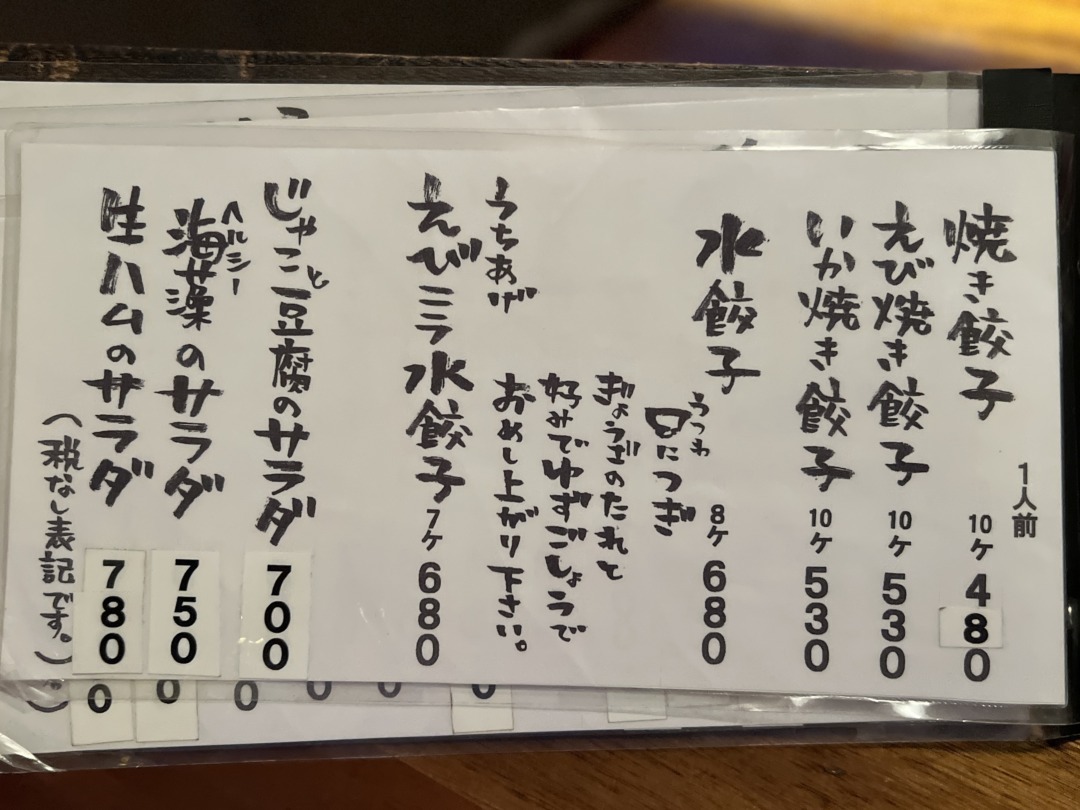 1人前
焼き餃子 10ヶ 480
えび焼き餃子 10ヶ 530
いか焼き餃子 10ヶ 530
水餃子 8ヶ 680
うつわ
につぎ
ぎょうざのたれと
好みでゆずごしょうで
おめし上がり下さい。
うちあげ
えびニラ水餃子 7ヶ 680
じゃこと豆腐のサラダ 700
ヘルシー
海藻のサラダ 750
生ハムのサラダ 780
(税なし表記です。)